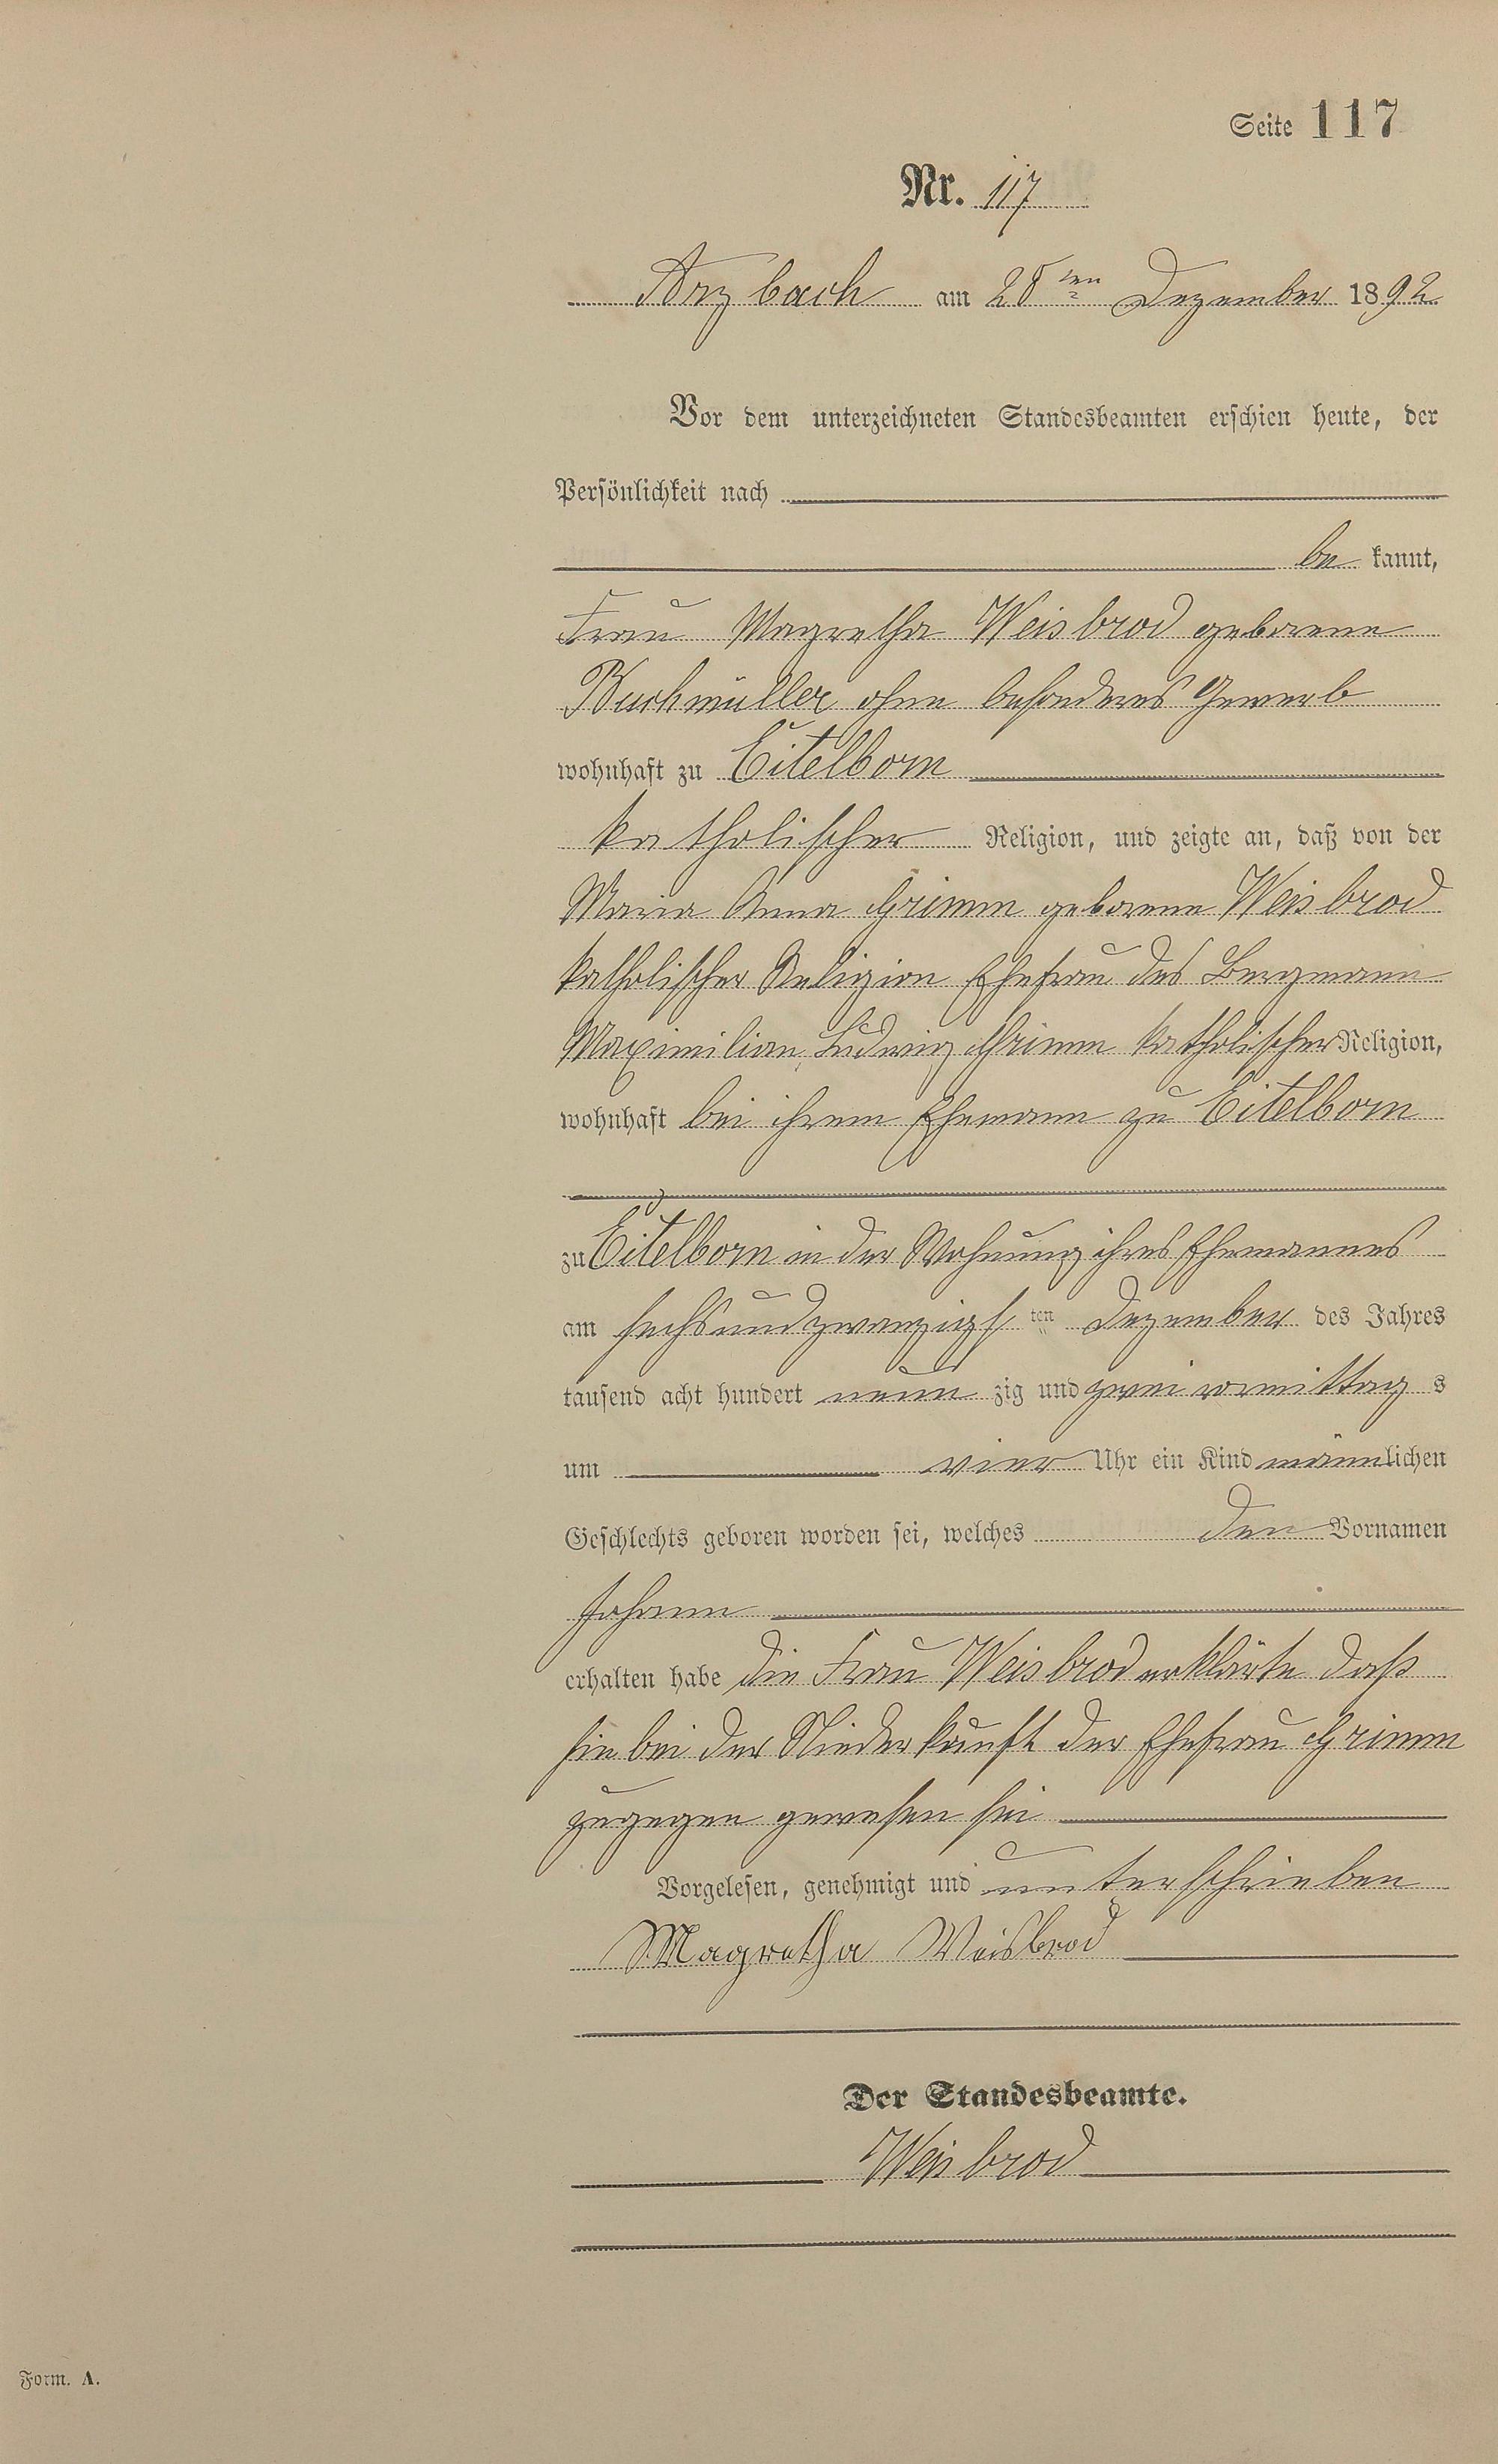 Seite 117
Nr. 117
Arzbach am 28ten Dezember 1892
Vor dem unterzeichneten Standesbeamten erschien heute, der
Persönlichkeit nach
be kannt,
Frau Magretha Weisbrod geborene
Buchmüller ohne besonderes Gewerb
wohnhaft zu Eitelborn
katholischer Religion, und zeigte an, daß von der
Maria Anna Grimm geborene Weisbrod
katholischer Religion Ehefrau des Bergmann
Maximilian Ludwig Grimm katholischer Religion,
wohnhaft bei ihrem Ehemann zu Eitelborn
zu Eitelborn in der Wohnung ihres Ehemannes
am sechsundzwanzigs ten Dezember des Jahres
tausend acht hundert neun zig und zwei vormittag s
um vier Uhr ein Kind männlichen
Geschlechts geboren worden sei, welches den Vornamen
Johann
erhalten habe die Frau Weisbrod erklärte daß
sie bei der Niederkunft der Ehefrau Grimm
zugegen gewesen sei
Vorgelesen, genehmigt und unterschrieben
Magretha Weisbrod
Der Standesbeamte.
Weisbrod
Form. A.